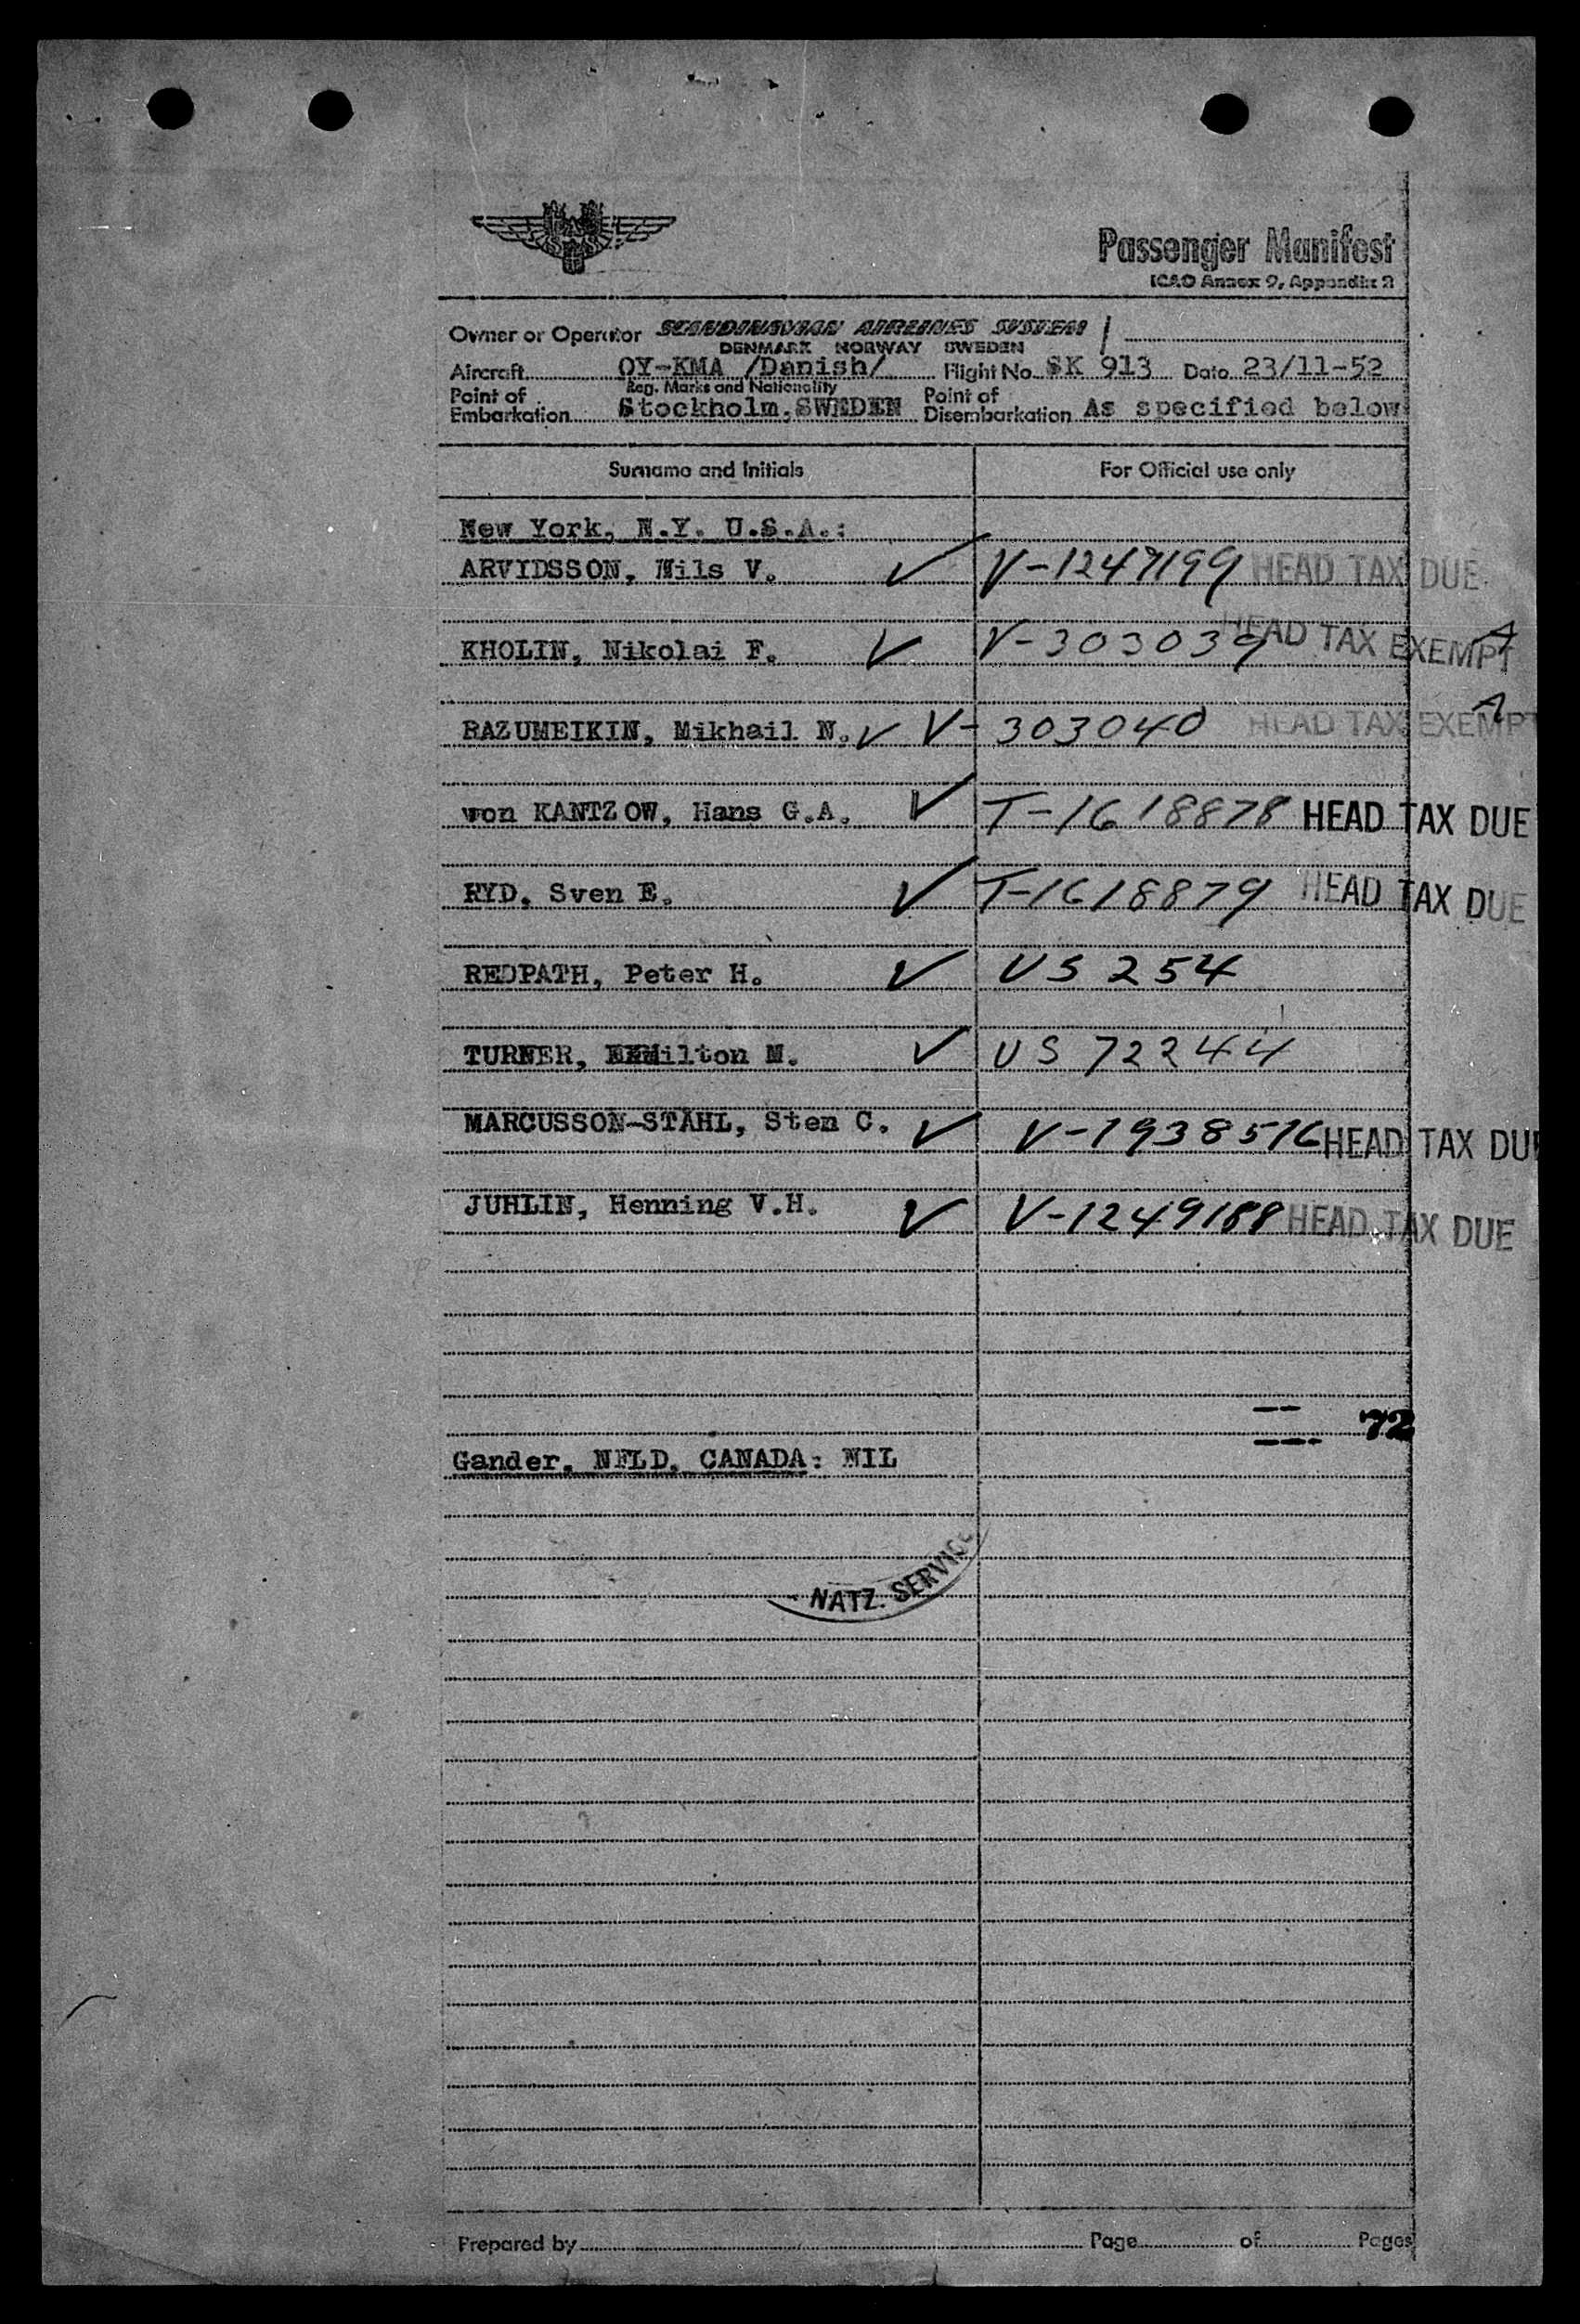 Passenger Manifest
ICAO Annex 9, Appendix 2
Owner or Operator SCANDINAVIAN AIRLINES SYSTEM
DENMARK NORWAY SWEDEN
Aircraft OY-KMA /Danish/ Flight No. SK 913 Date 23/11-52
Reg. Marks and Nationality
Point of Embarkation Stockholm, SWEDEN Point of Disembarkation As specified below
Surname and Initials For Official use only
New York, N.Y. U.S.A.:
ARVIDSSON, Nils V. ✓ HEAD TAX DUE
KHOLIN, Nikolai F. ✓ V-303039 HEAD TAX EXEMPT A
RAZUMEIKIN, Mikhail N. ✓ V-303040 HEAD TAX EXEMPT A
von KANTZOW, Hans G.A. ✓ T-1618878 HEAD TAX DUE
RYD, Sven E. ✓ T-1618879 HEAD TAX DUE
REDPATH, Peter H. ✓ US 254
TURNER, milton M. ✓ US 72244
MARCUSSON-STAHL, Sten C. ✓ V-1938516 HEAD TAX DUE
JUHLIN, Henning V.H. ✓ V-1249188 HEAD TAX DUE
72
Gander, NFLD, CANADA: NIL
NATZ. SERVICE
Prepared by Page of Pages